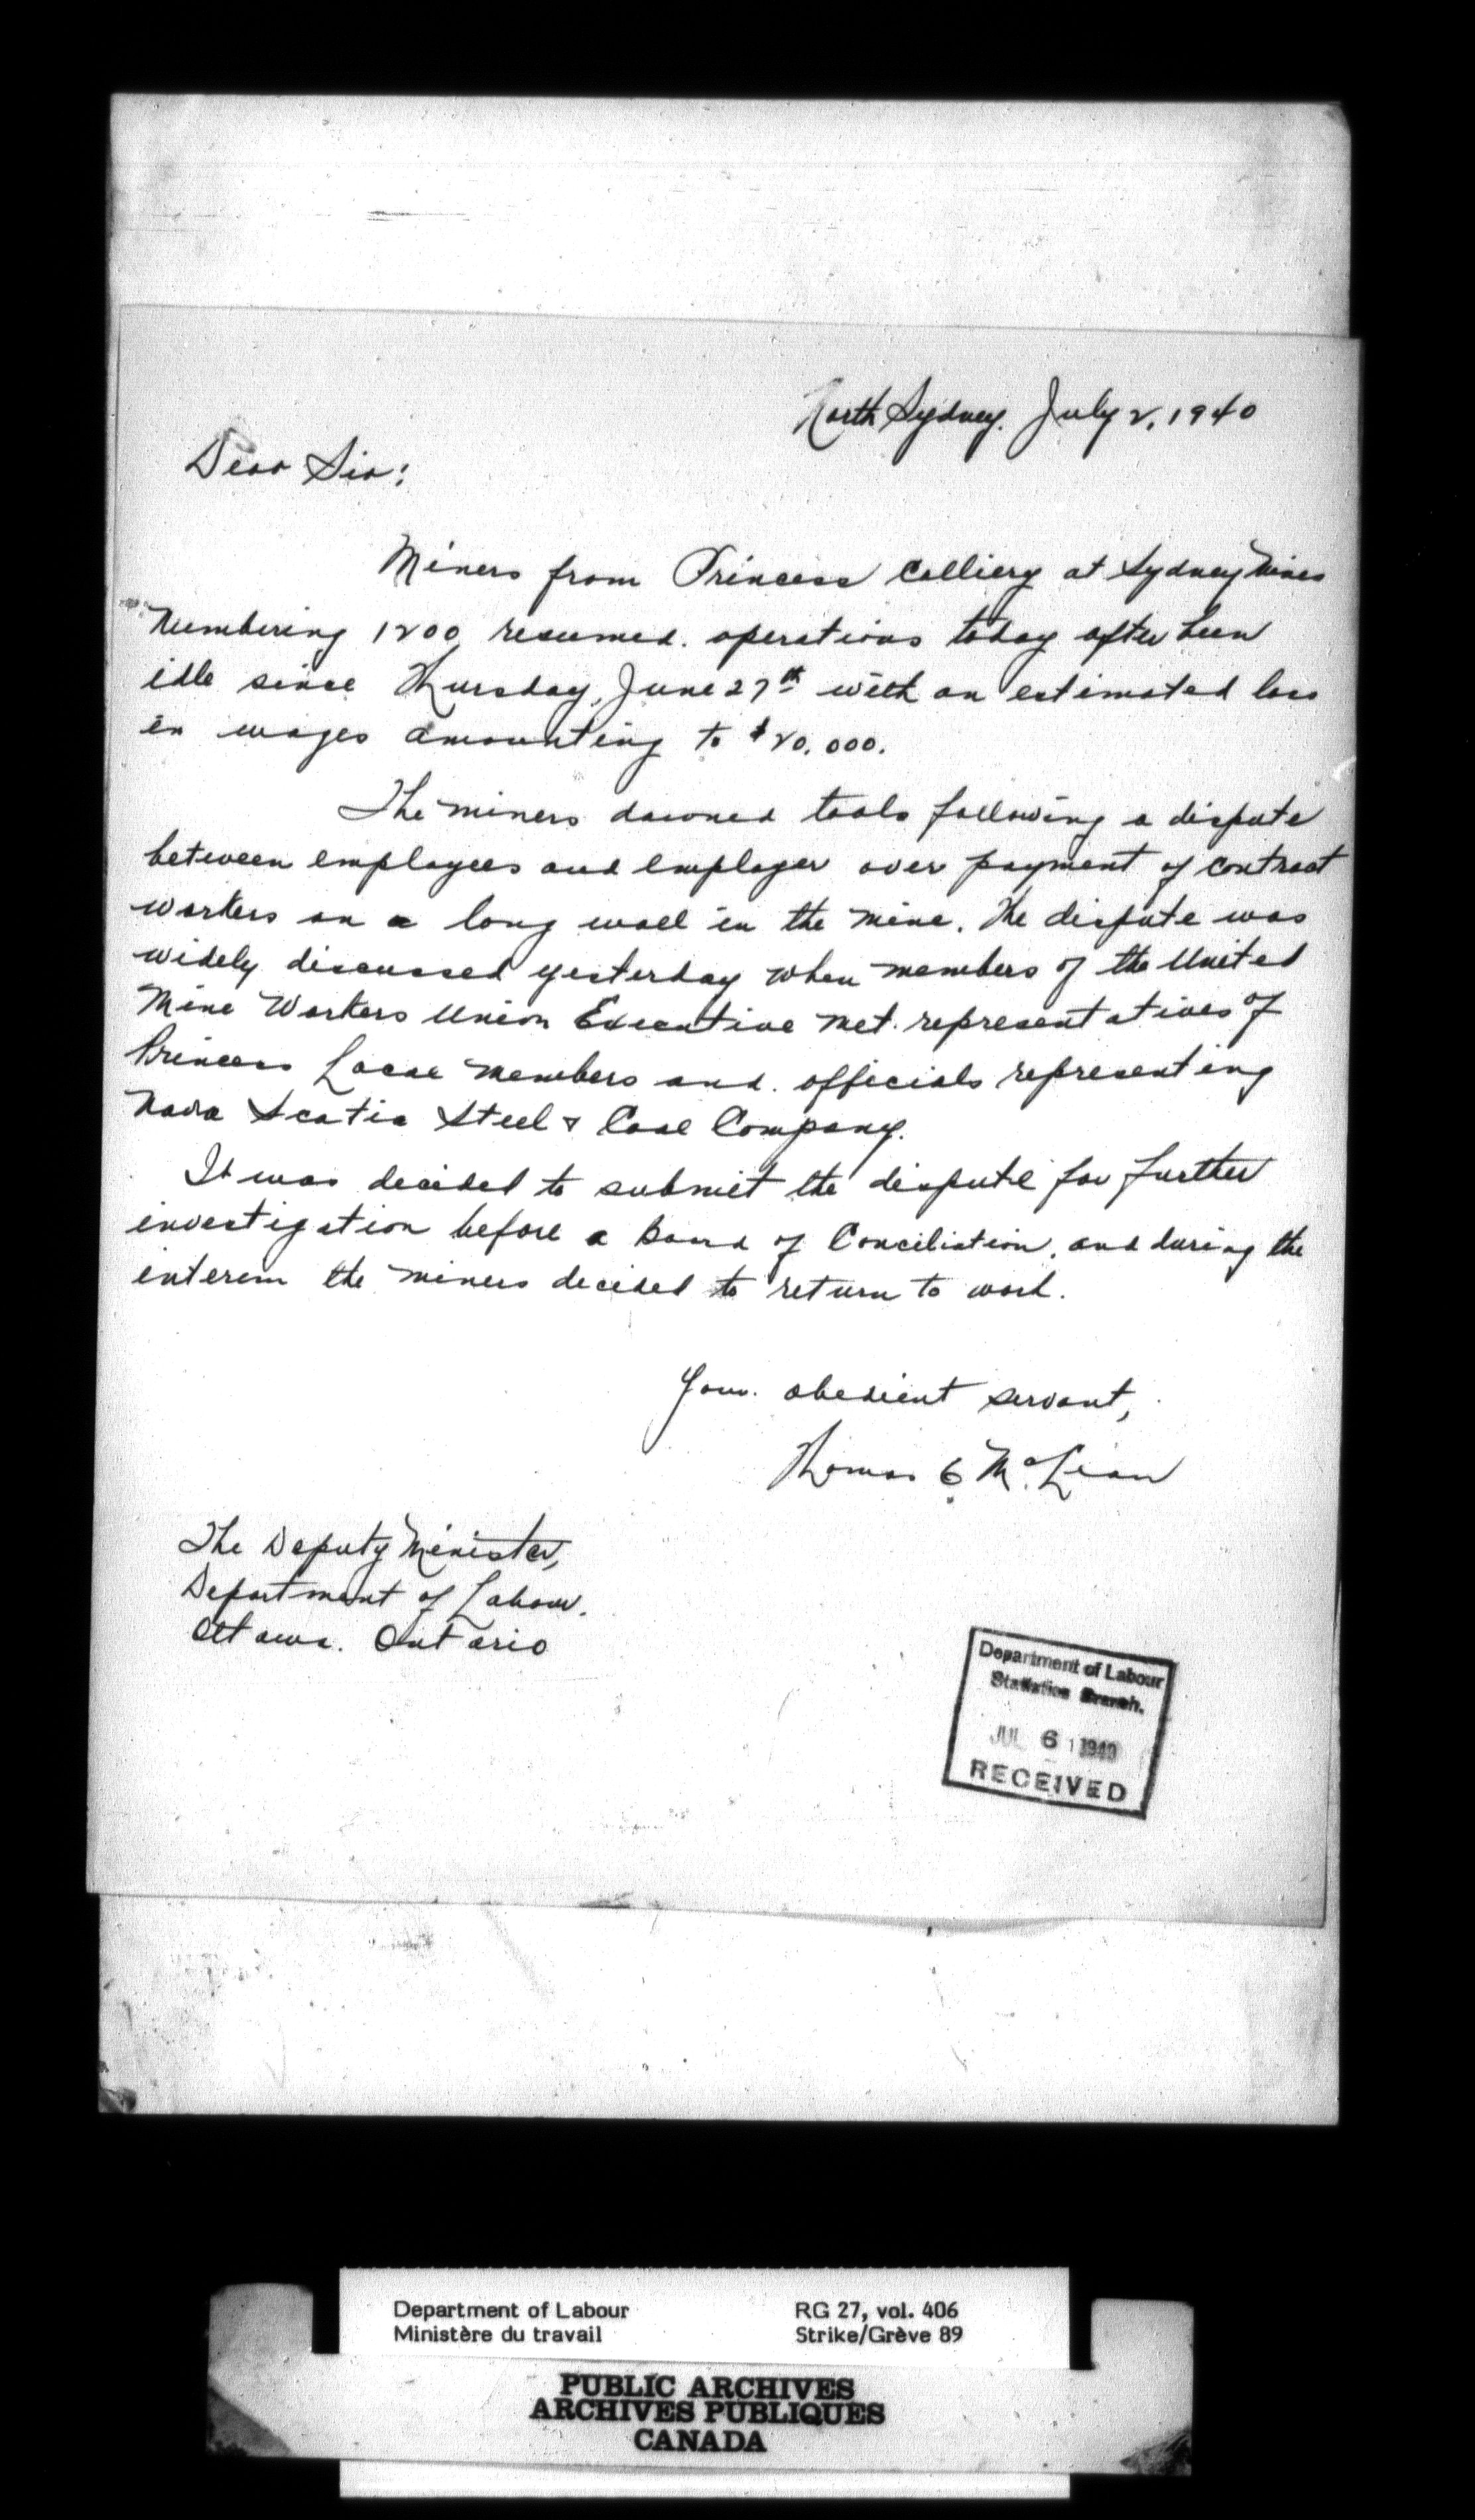 North Sydney. July 2, 1940
Dear Sir:
Miners from Princess Colliery at Sydney Mines
Numbering 1200 resumed operations today after been
idle since Thursday, June 27th with an estimated loss
in wages amounting to $20,000.
The miners downed tools following a dispute
between employees and employer over payment of contract
workers on a long wall in the mine. The dispute was
widely discussed yesterday when members of the United
Mine Workers Union Executive met representatives of
Princess Local members and officials representing
Nova Scotia Steel & Coal Company.
It was decided to submit the dispute for further
investigation before a Board of Conciliation, and during the
interem the miners decided to return to work.
Your obedient servant,
Thomas C McLean
The Deputy Minister,
Department of Labour.
Ottawa. Ontario
Department of Labour
Statistics Branch.
JUL 6 1940
RECEIVED
Department of Labour RG 27, vol. 406
Ministère du travail Strike/Grève 89
PUBLIC ARCHIVES
ARCHIVES PUBLIQUES
CANADA